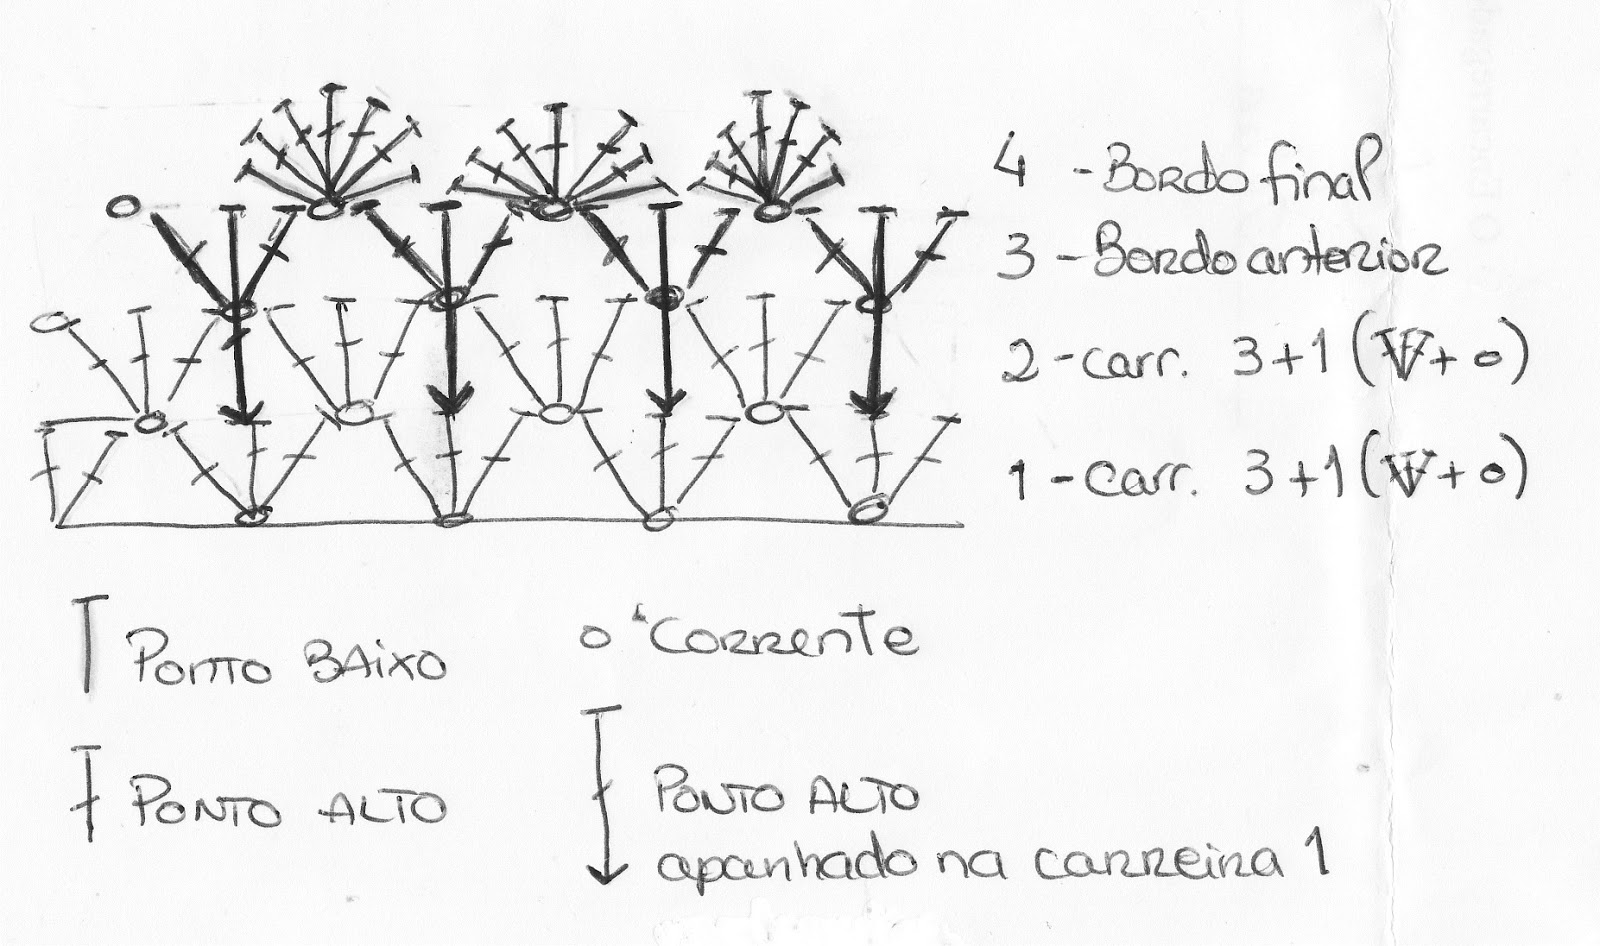 4 - Bordo final
3 - Bordo anterior
2 - carr. 3+1 ( + o)
1 - carr. 3+1 ( + o)
Ponto Baixo
o Corrente
Ponto Alto
Ponto Alto
apanhado na carreira 1